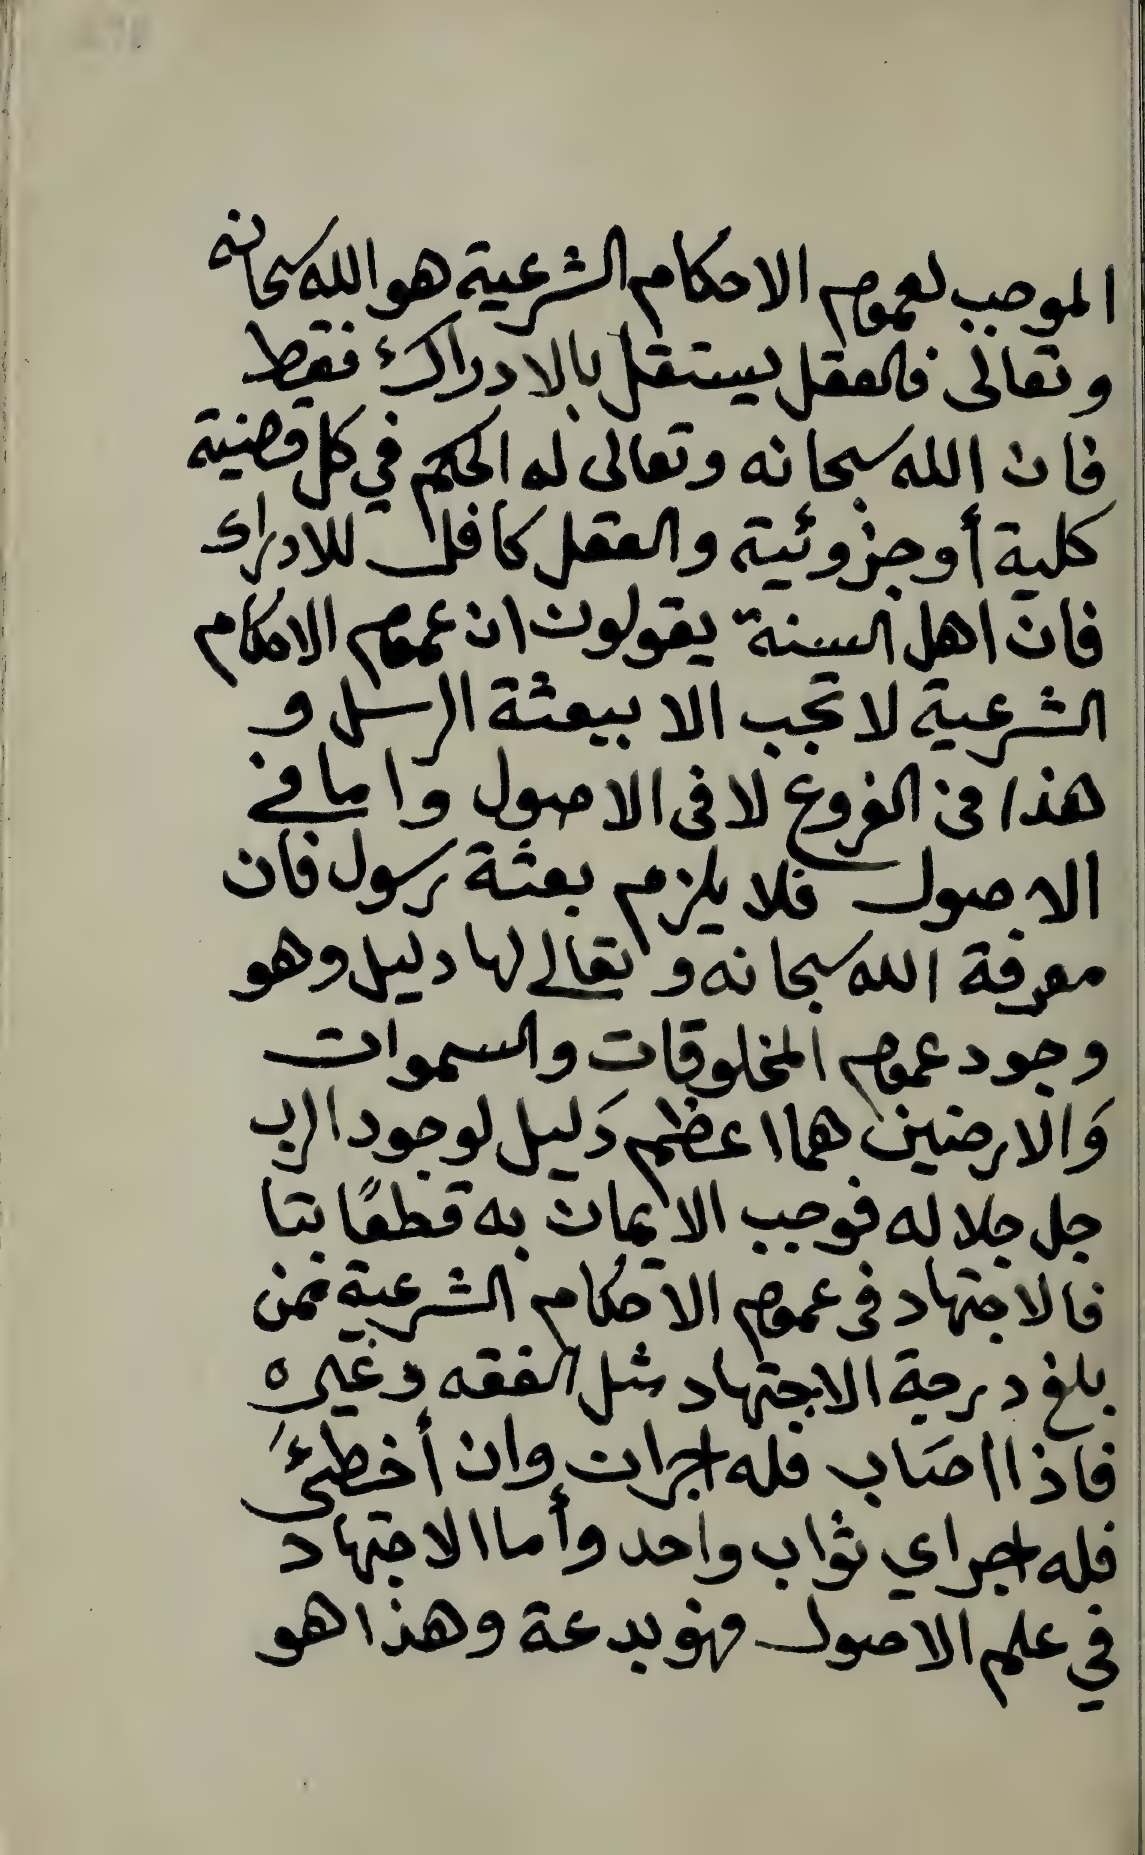 الموجب لعموم الاحكام الشرعية هو الله سبحانه
وتعالى فالعقل يستقل بالادراك فقط
فان الله سبحانه وتعالى له الحكم في كل قضية
كلية أو جزوئية والعقل كافل للادراك
فان اهل السنة يقولون ان عموم الاحكام
الشرعية لا تجب الا ببعثة الرسل و
هذا فى الفروع لا فى الاصول واما في
الاصول فلا يلزم بعثة رسول فان
معرفة الله سبحانه وتعالى لها دليل وهو
وجود عموم المخلوقات والسموات
وَالارضين هما اعظم دَليل لوجود الرب
جل جلاله فوجب الايمان به قطعًا بتا
فالاجتهاد فى عموم الاحكام الشرعية فمن
بلغ درجة الاجتهاد مثل الفقه وغيره
فاذا اصَاب فله اجران وان أخطئَ
فله اجر اي ثواب واحد وأما الاجتهاد
في علم الاصول فهو بدعة وهذا هو